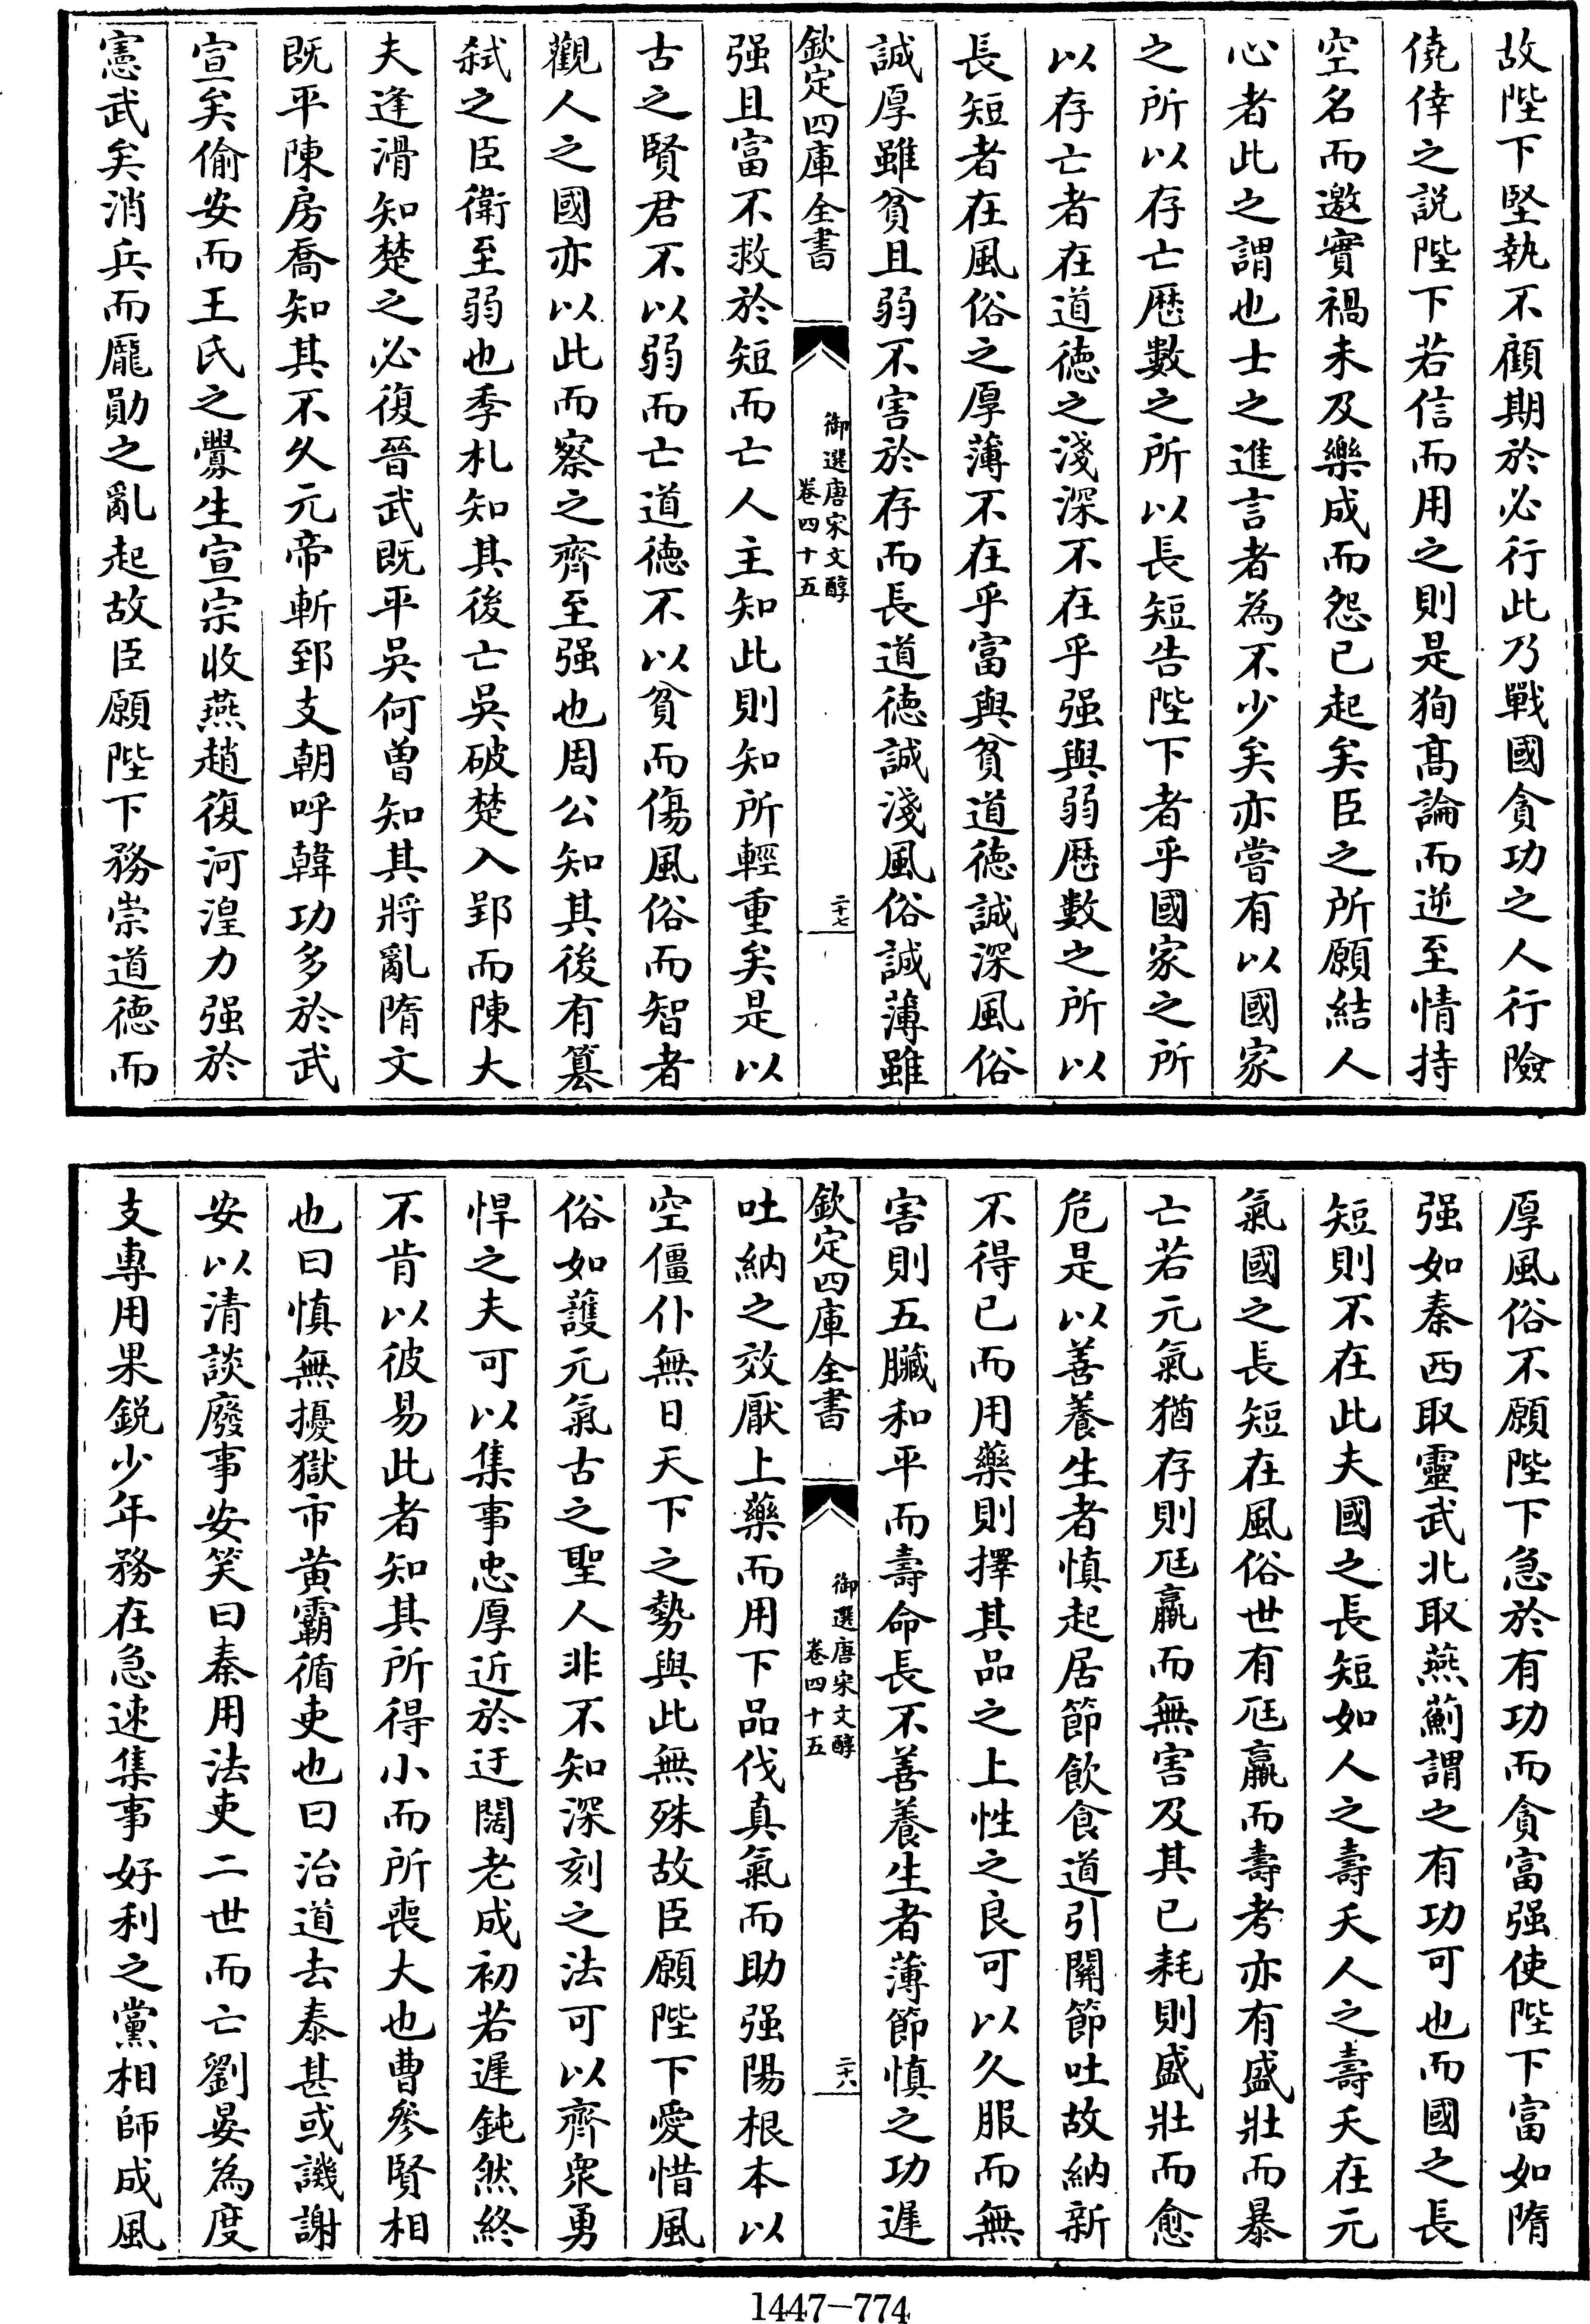 故陛下堅執不顧期於必行此乃戰國貪功之人行險
僥倖之説陛下若信而用之則是狥髙論而逆至情持
空名而邀實禍未及樂成而怨已起矣臣之所願結人
心者此之謂也士之進言者為不少矣亦嘗有以國家
之所以存亡厯數之所以長短告陛下者乎國家之所
以存亡者在道徳之淺深不在乎强與弱厯數之所以
長短者在風俗之厚薄不在乎富與貧道徳誠深風俗
誠厚雖貧且弱不害於存而長道徳誠淺風俗誠薄雖
欽定四庫全書
御選唐宋文醇
卷四十五
二十七
强且富不救於短而亡人主知此則知所輕重矣是以
古之賢君不以弱而亡道徳不以貧而傷風俗而智者
觀人之國亦以此而察之齊至强也周公知其後有簒
弑之臣衛至弱也季札知其後亡吳破楚入郢而陳大
夫逢滑知楚之必復晉武既平吳何曽知其將亂隋文
既平陳房喬知其不久元帝斬郅支朝呼韓功多於武
宣矣偷安而王氏之釁生宣宗收燕趙復河湟力强於
憲武矣消兵而龐勛之亂起故臣願陛下務崇道徳而
厚風俗不願陛下急於有功而貪富强使陛下富如隋
强如秦西取靈武北取燕薊謂之有功可也而國之長
短則不在此夫國之長短如人之壽夭人之壽夭在元
氣國之長短在風俗世有尫羸而壽考亦有盛壯而暴
亡若元氣猶存則尫羸而無害及其已耗則盛壯而愈
危是以善養生者慎起居節飲食道引關節吐故納新
不得已而用藥則擇其品之上性之良可以久服而無
害則五臟和平而壽命長不善養生者薄節慎之功遲
欽定四庫全書
御選唐宋文醇
卷四十五
二十八
吐納之效厭上藥而用下品伐真氣而助强陽根本以
空僵仆無日天下之勢與此無殊故臣願陛下愛惜風
俗如護元氣古之聖人非不知深刻之法可以齊衆勇
悍之夫可以集事忠厚近於迂闊老成初若遲鈍然終
不肯以彼易此者知其所得小而所喪大也曹參賢相
也曰慎無擾獄市黄霸循吏也曰治道去泰甚或譏謝
安以清談廢事安笑曰秦用法吏二世而亡劉晏為度
支專用果鋭少年務在急速集事好利之黨相師成風
1447-774